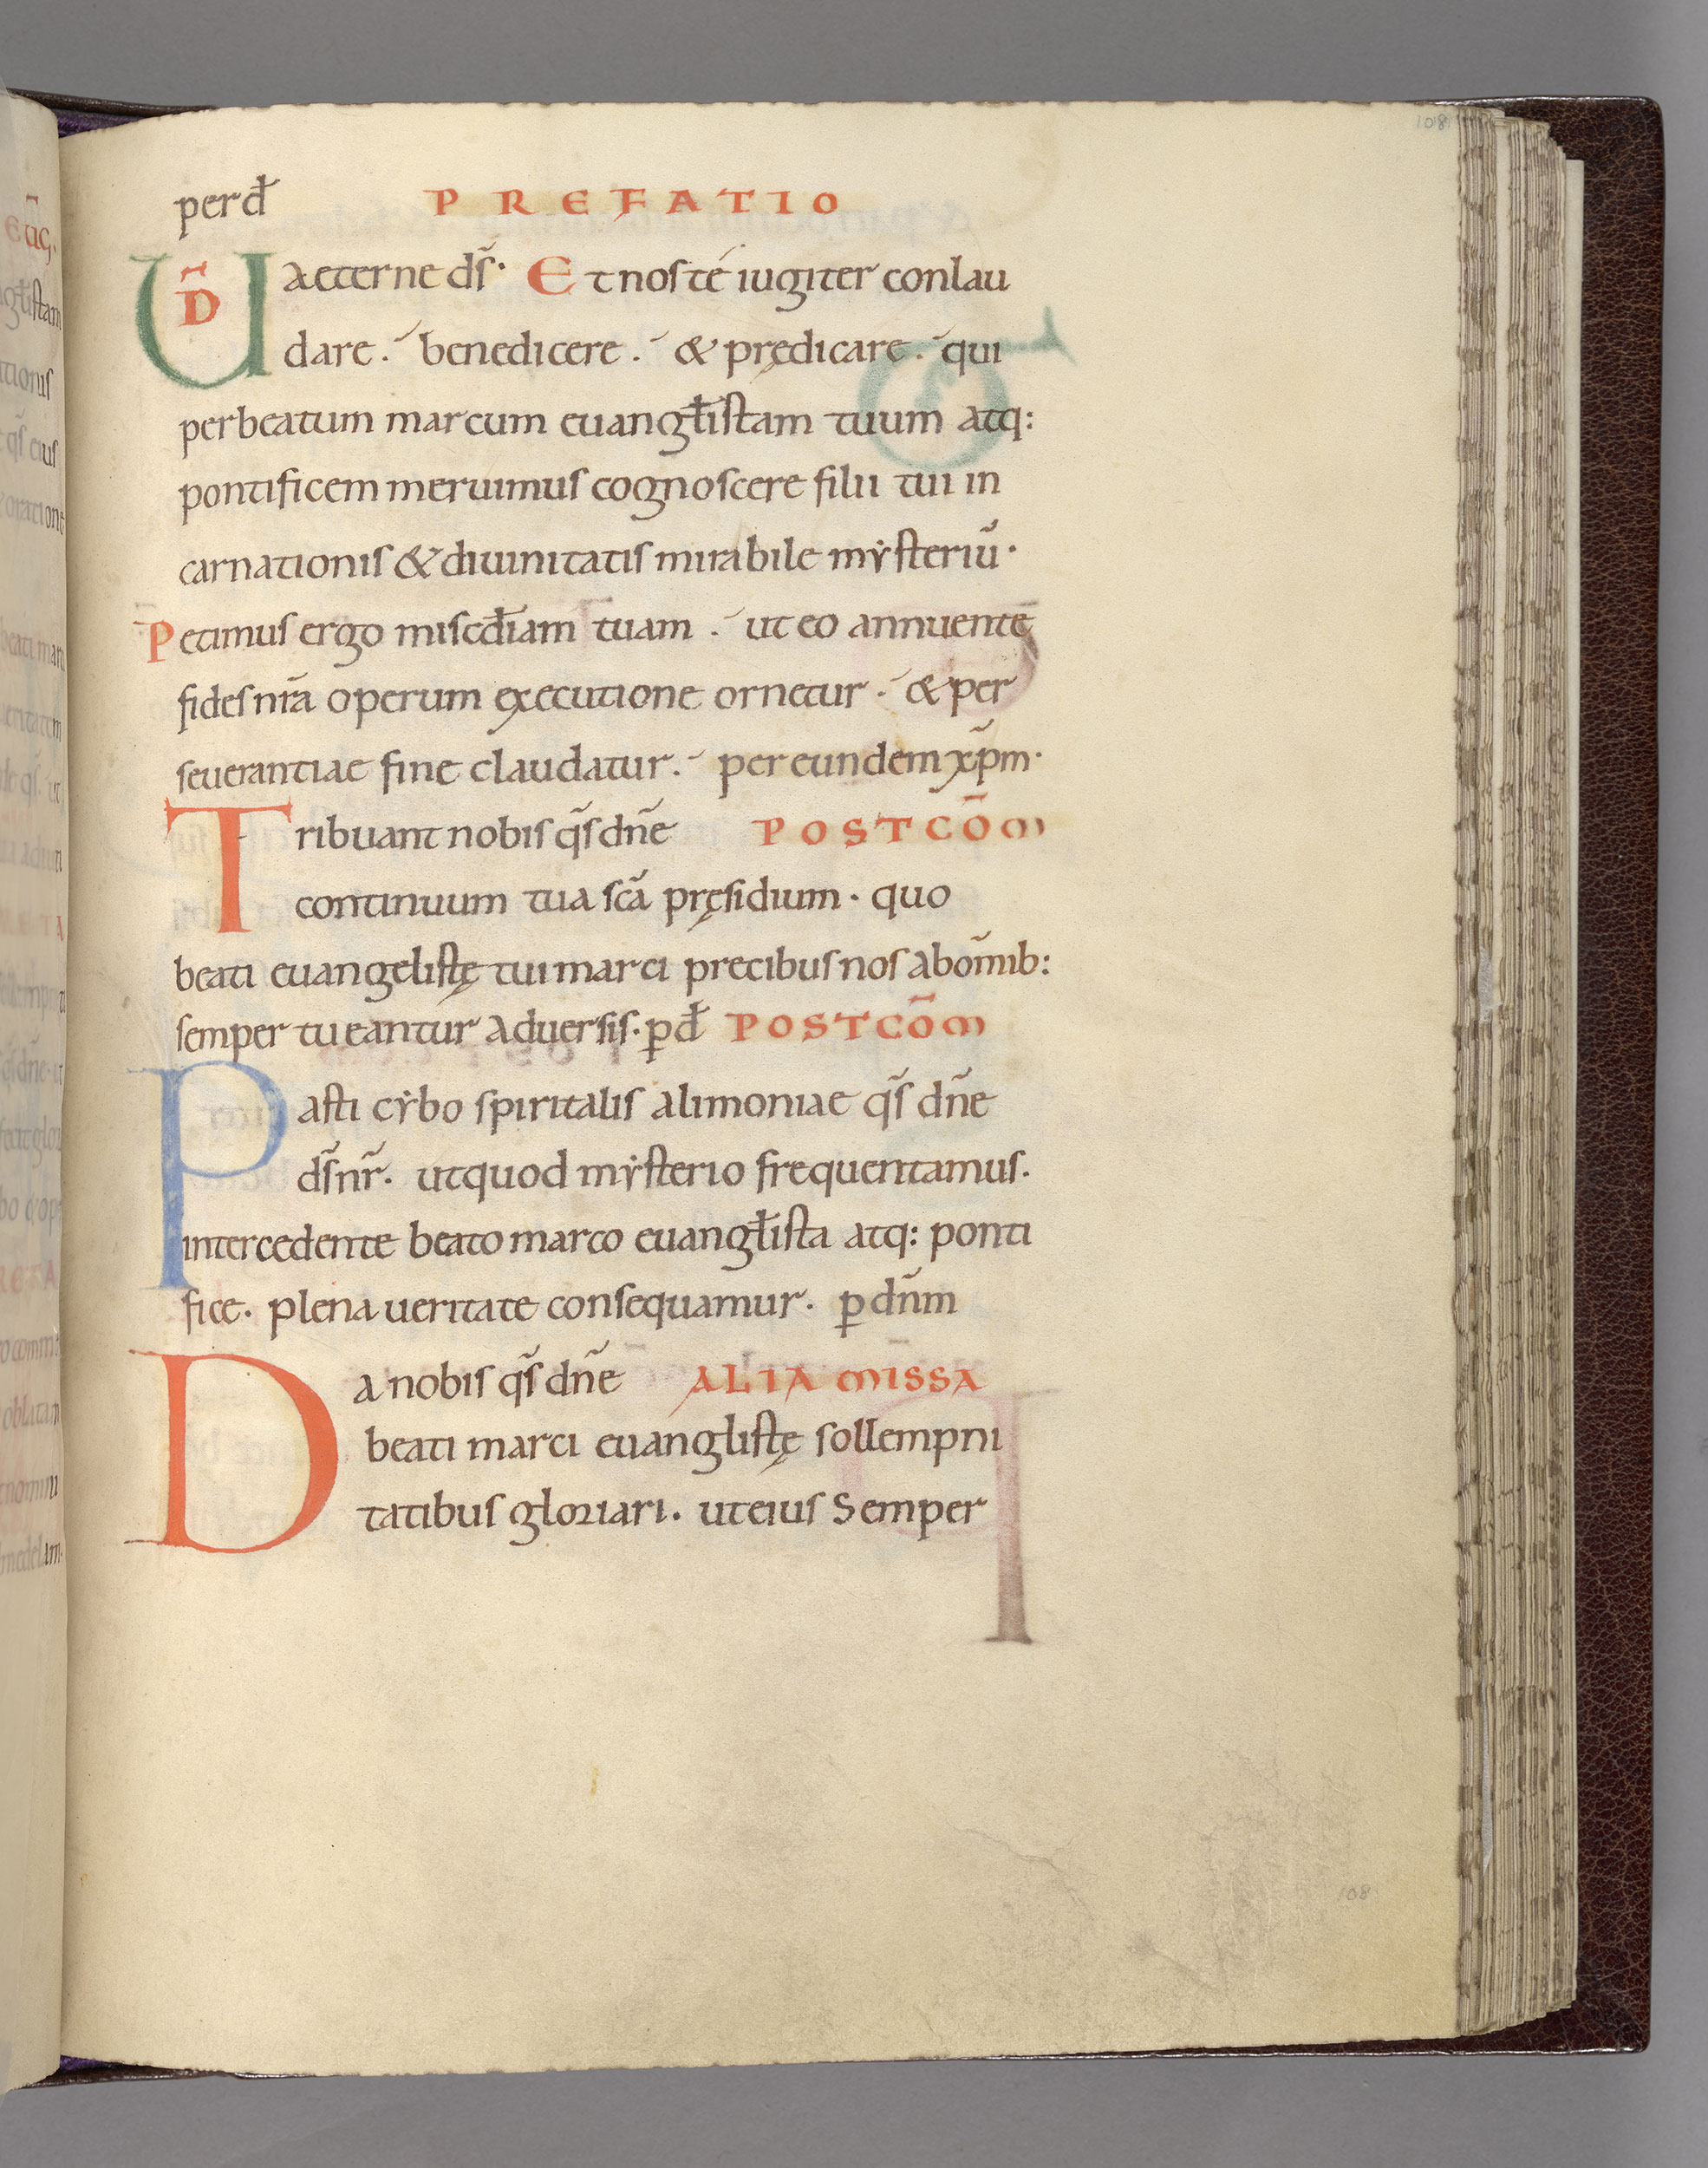 108
perđ PREFATIO
UD̄ aeterne ds̄· Et nos té iugiter conlau
dare. benedicere. & prędicare. qui
per beatum marcum euangłistam tuum atq:
pontificem meruimus cognoscere filii tui in
carnationis & diuinitatis mirabile mẏsteriū·
Petimus ergo misc̄điam tuam. ut eo annuente
fides nr̄a operum executione ornetur. & per
seuerantiae fine claudatur. per eundem xp̄m·
Tribuant nobis qs̄ dn̄e POSTCŌM
continuum tua sc̄a pręsidium· quo
beati euangelistę tui marci precibus nos ab om̄ib:
semper tueantur aduersis· ꝑđ POSTCŌM
Pasti cẏbo spiritalis alimoniae qs̄ dn̄e
ds̄ nr̄· ut quod mẏsterio frequentamus·
intercedente beato marco euangłista atq: ponti
fice· plena ueritate consequamur· ꝑ dn̄m
Da nobis qs̄ dn̄e ALIA MISSA
beati marci euanglistę sollempni
tatibus gloriari· ut eius Semper
108